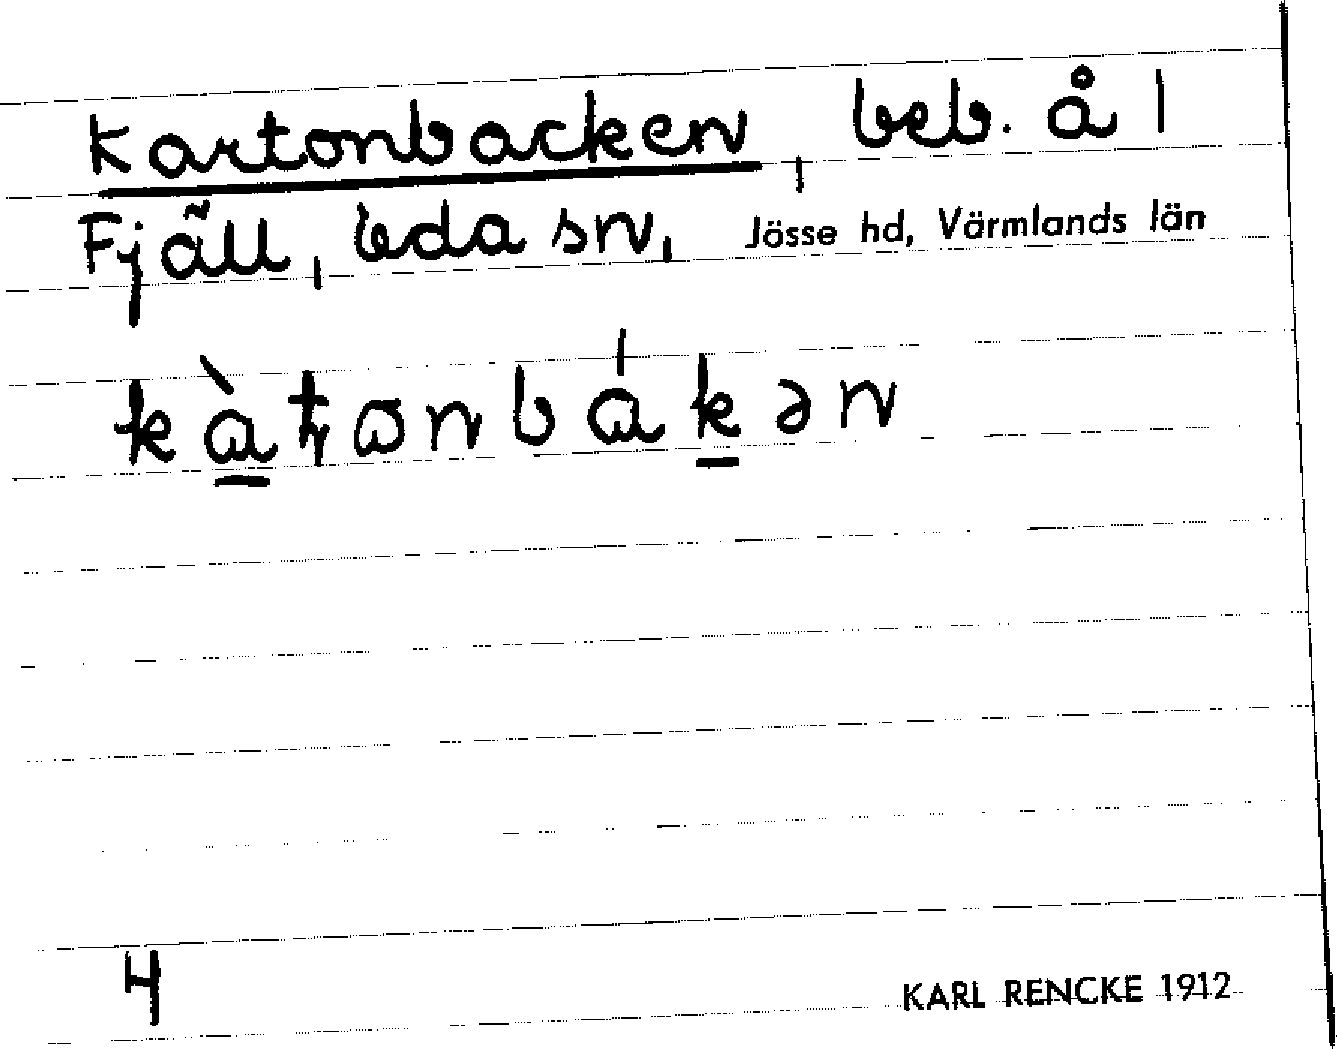 Kartonbacken, beb. å 1
Fjäll, Eda sn, Jösse hd, Värmlands län
kàƫɷnbákən
4
KARL RENCKE 1912